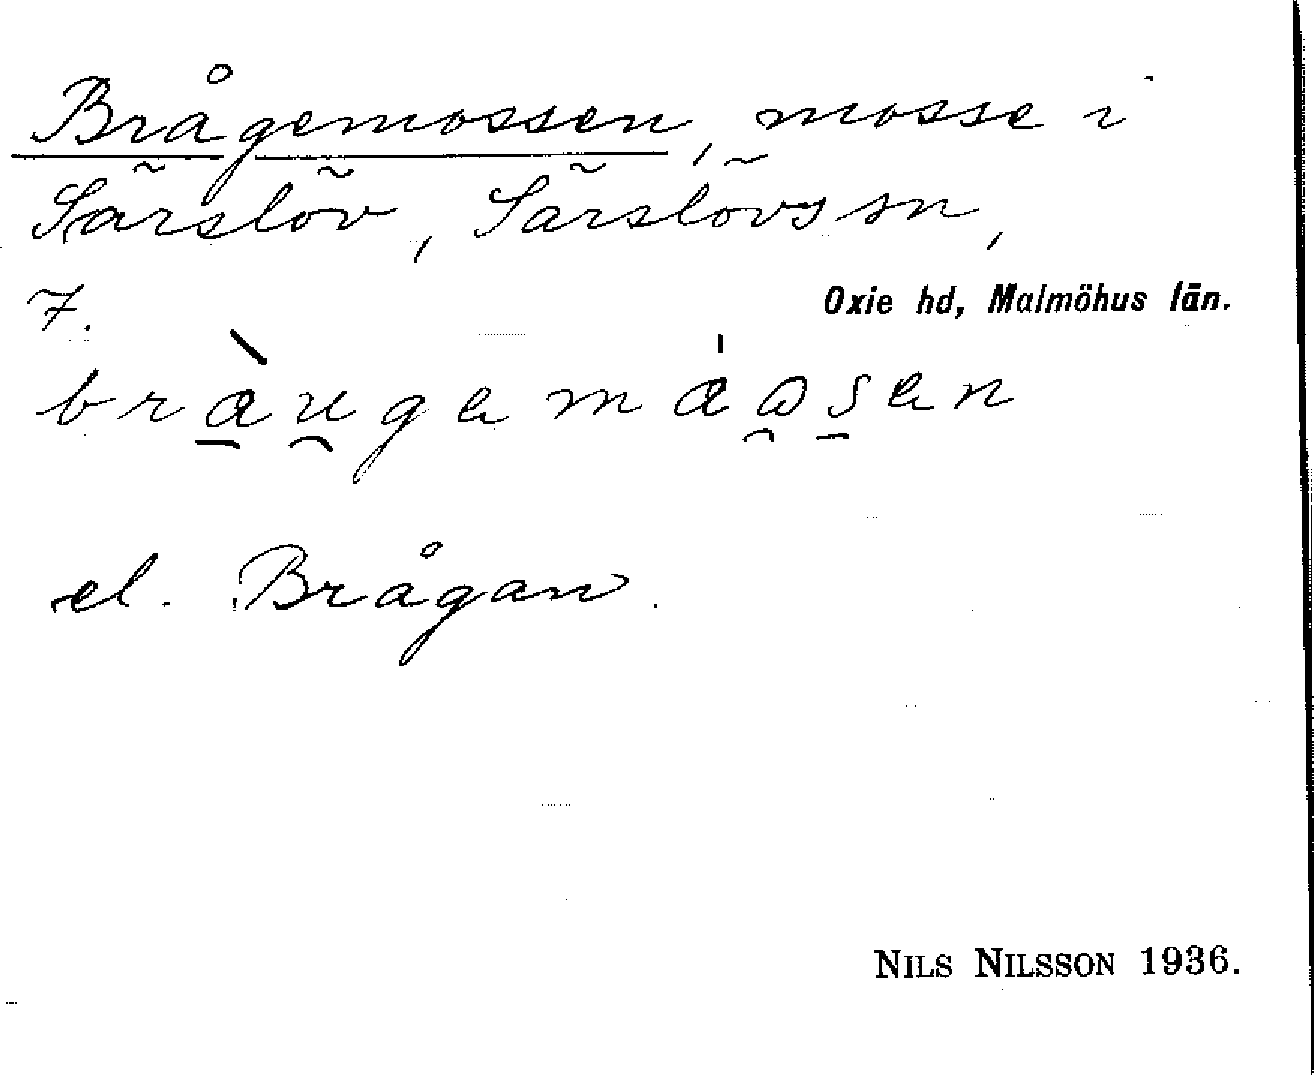 Brågemossen, mosse i
Särslöv, Särslövs sn,
7.
Oxie hd, Malmöhus län.
bràu̯gəmáɷ̯s̱ən
el. Brågan.
NILS NILSSON 1936.